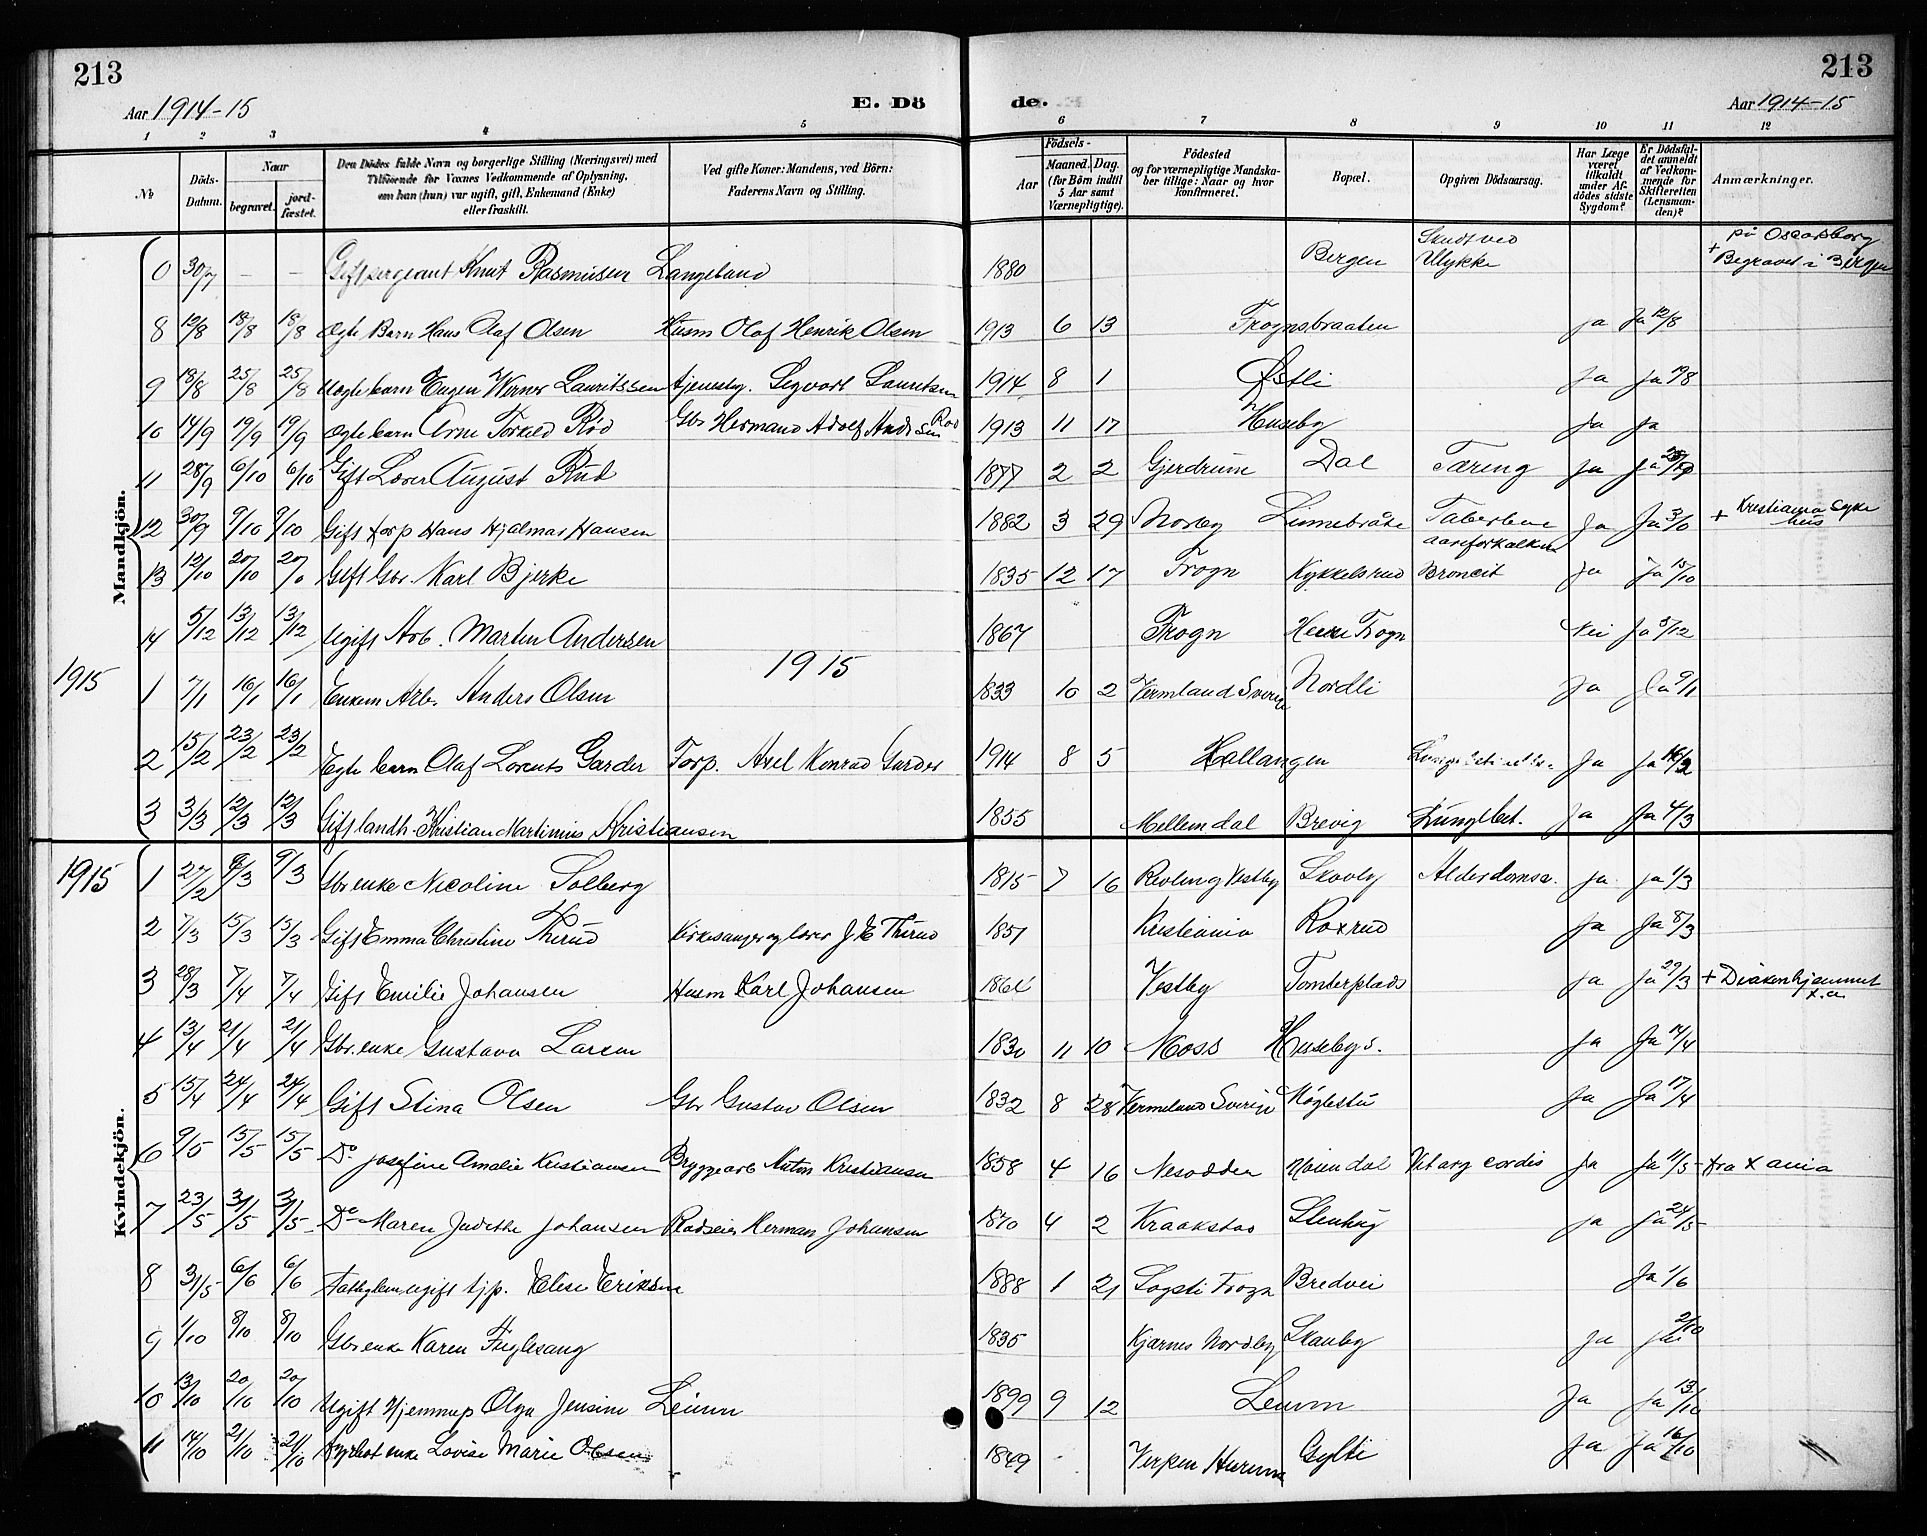 213
Aar 1914-15
E. Dö
de.
213
Aar 1914-15
1 2 3 4 5 6 7 8 9 10 11 12
No
Döds-Datum.
Naar
begravet.
jord-fæstet.
Den Dödes fulde Navn og borgerlige Stilling (Næringsvei) med
Tilföiende for Voxnes Vedkommende af Oplysning,
om han (hun) var ugift, gift, Enkemand (Enke)
eller fraskilt.
Ved gifte Koner: Mandens, ved Börn:
Faderens Navn og Stilling.
Födsels-
Aar
Maaned. Dag.
(for Börn indtil
5 Aar samt
Værnepligtige).
Födested
og for værnepligtige Mandska-
ber tillige: Naar og hvor
konfirmeret.
Bopæl.
Opgiven Dödsaarsag.
Har Læge
været
tilkaldt
under Af-
dödes sidste
Sygdom?
Er Dödsfal-
det anmeldt
af Vedkom-
mende for
Skifteretten
(Lensman-
den)?
Anmærkninger.
Mandkjön.
0 30/7 – – Gift sergeant Knut Rasmusen Langeland 1880 Bergen Skudt ved Ulykke + på Oscarsborg Begravet i Bergen
8 12/8 18/8 18/8 Ægte Barn Hans Olaf Olsen Husm Olaf Henrik Olsen 1913 6 13 Frognsbraaten ja Ja 12/8
9 18/8 25/8 25/8 Uægte barn Eugen Werner Lauritssen tjenestg. Segvart Lauritsen 1914 8 1 Østli Ja Ja 19/8
10 14/9 19/9 19/9 Ægte barn Arne Torkild Rød Gbr Hermand Adolf Andrsen Rød 1913 11 17 Huseby Ja Ja
11 28/9 6/10 6/10 Gift Lærer August Rud 1877 2 2 Gjerdrum Dal Tæring Ja Ja
12 30/9 9/10 9/10 Gift Torp Hans Hjalmar Hansen 1882 3 29 Norby Linnebråte Ja Ja 3/10 + Kristiania Sykehus
13 12/10 20/10 20/10 Gift Gbr. Karl Bjerke 1835 12 17 Frogn Kykkelsrud aareforkalken Broncit Ja Ja 15/10
14 5/12 13/12 13/12 Ugift Arb. Martin Andersen 1867 Frogn Frogn Nei Ja 5/12
1915
1915
1 7/1 16/1 16/1 Enkem Arb. Anders Olsen 1833 10 2 Vermland Sverige Nordli Ja Ja 9/1
2 15/2 23/2 23/2 Egte barn Olaf Lorents Garder Torp. Axel Konrad Garder 1914 8 5 Hallangen Ja Ja 16/2
3 3/3 12/3 12/3 Gift landh. Kristian Martinius Kristiansen 1855 Mellemdal Brevig Lungebet. Ja Ja 4/3
1915
Kvindekjön.
1 27/2 9/3 9/3 Gbr enke Nicoline Solberg 1815 7 16 Revling Vestby Skovly Alderdomss. ja ja 1/3
2 7/3 15/3 15/3 Gift Emma Christine Thrud Kirkesanger og lærer J. E Thrud 1851 Kristiania Roxrud Ja Ja 8/3
3 28/3 7/4 7/4 Gift Emilie Johansen Husm Karl Johansen Vestby Tomterplads ja Ja 29/3 + Diakonhjemmet
4 13/4 21/4 21/4 Gbr. enke Gustava Larsen 1830 11 10 Moss Husebys. Ja Ja 14/4
5 15/4 24/4 24/4 Gift Stina Olsen Gbr Gustav Olsen 1832 8 28 Vermland Sverige Høglestu Ja Ja 17/4
6 9/5 15/5 15/5 Do Josefine Amalie Kristiansen Bryggearb Anton Kristiansen 1858 4 16 Nesodden Vit org cordis Ja Ja 11/5 fra X ania
7 23/5 31/5 31/5 Do Maren Judithe Johansen Pladseier Herman Johansen 1870 4 2 Kraakstad Stenhøj ja ja 24/5
8 31/5 6/6 6/6 Fattiglem, ugift tjp. Elise Eriksen 1888 1 21 Sogsti Frogn Bredvei Ja 1/6
9 1/10 8/10 8/10 Gbr enke Karen Fuglesang 1835 Kjærnes Nordby Skauby ja ja 2/10
10 13/10 20/10 20/10 Ugift Hjemmep Olga Jensine Leiren 1899 9 12 Ja Ja 13/10
11 14/10 21/10 21/10 Fyrbøt enke Lovise Marie Olsen 1849 Verpen Hurum Gylte Ja Ja 16/10